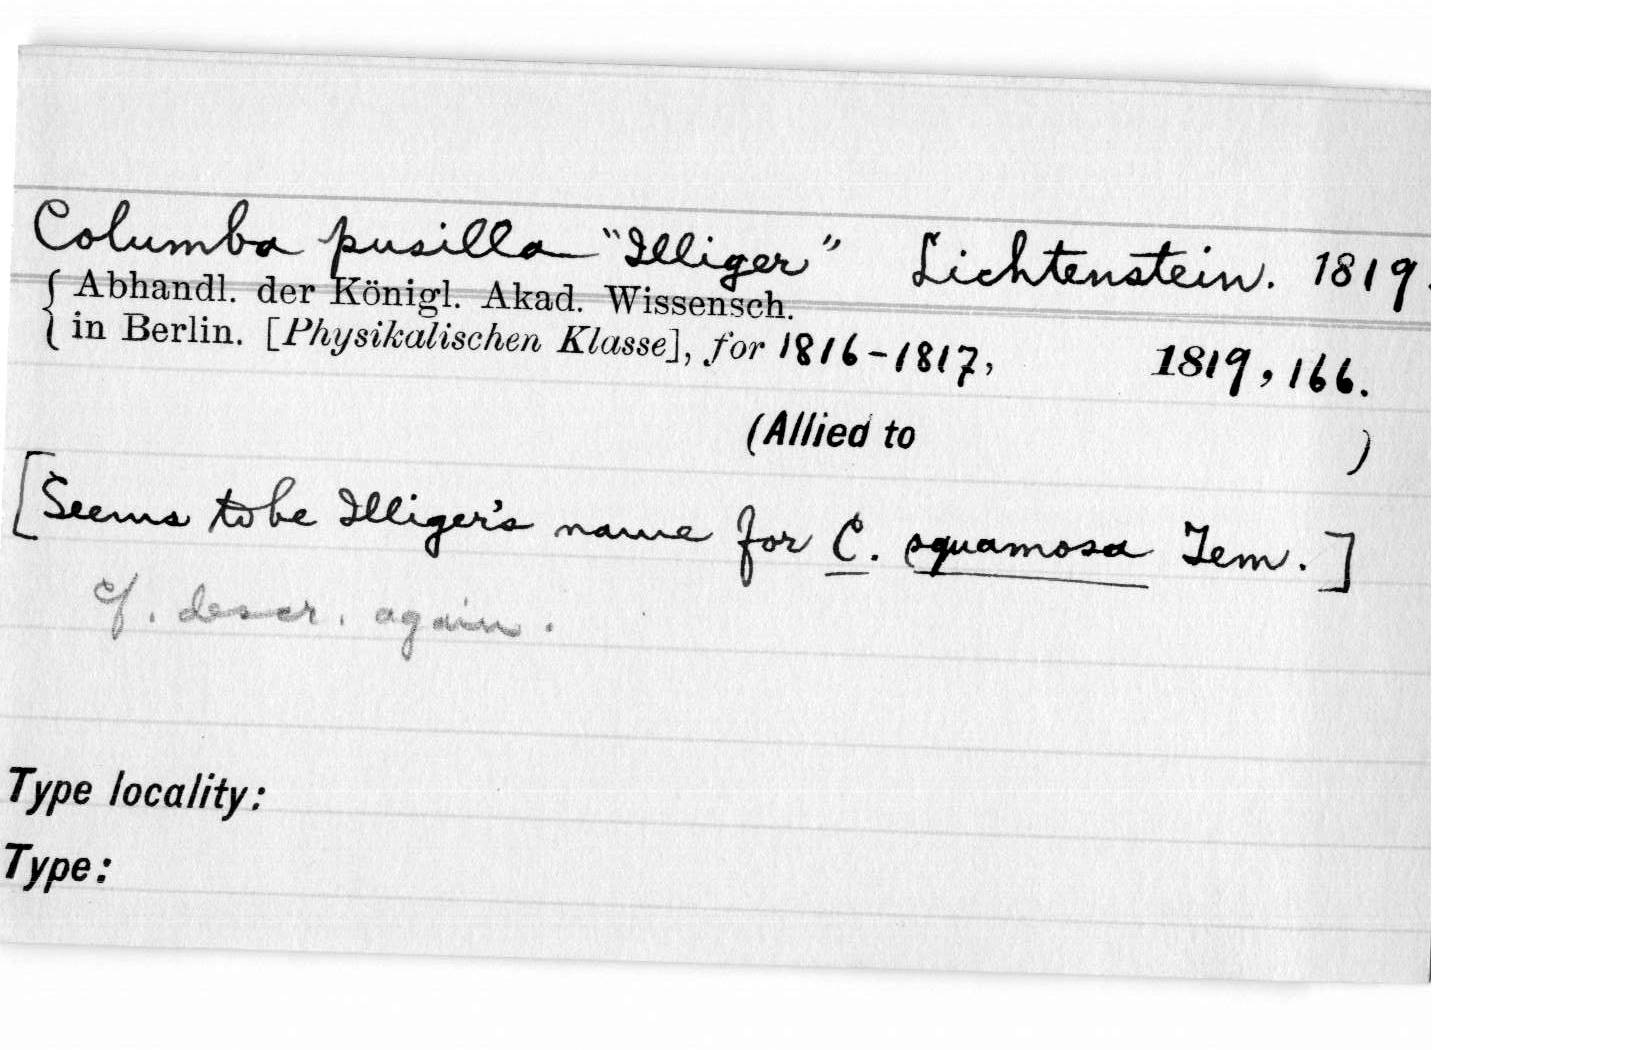 Columba pusilla "Illiger" Lichtenstein. 1819.
Abhandl. der Königl. Akad. Wissensch.
in Berlin. [Physikalischen Klasse], for 1816-1817, 1819, 166.
(Allied to )
[Seems to be Illiger's name for C. squamosa Tem.]
cf. descr. again.
Type locality:
Type: